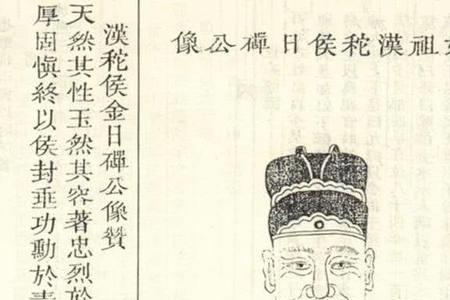 祖漢秺侯日磾公像
漢秺侯金日磾公像贊
天然其性玉然其容著忠烈於
厚固愼終以侯封垂功勳於